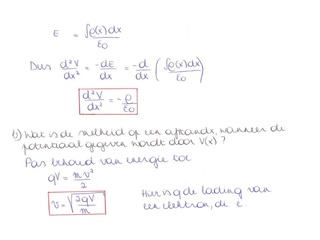 E = ∫ρ(x)dx / ε0
Dus d²V/dx² = -dE/dx = -d/dx ( ∫ρ(x)dx / ε0 )
d²V/dx² = -ρ/ε0
b) Wat is de snelheid op een afstand x, wanneer de
potentiaal gegeven wordt door V(x) ?
Pas behoud van energie toe
qV = mv²/2
v = √(2qV/m) Hier is q de lading van
een elektron, de e